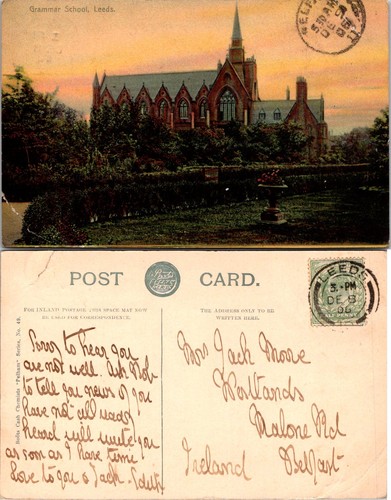 Grammar School, Leeds.
BELFAST
5 30 AM
DE
POST CARD.
FOR INLAND POSTAGE THIS SPACE MAY NOW
BE USED FOR CORRESPONDENCE.
THE ADDRESS ONLY TO BE
WRITTEN HERE.
LEEDS
3 - PM
DE 8
06
Boots Cash Chemists "Pelham" Series, No. 48.
Sorry to hear you
are not well. Ask Bob
to tell you news if you
have not all ready
heard will write you
as soon as I have time
Love to you & Jack - Edith
Mrs Jack Moore
Westlands
Malone Rd
Belfast
Ireland